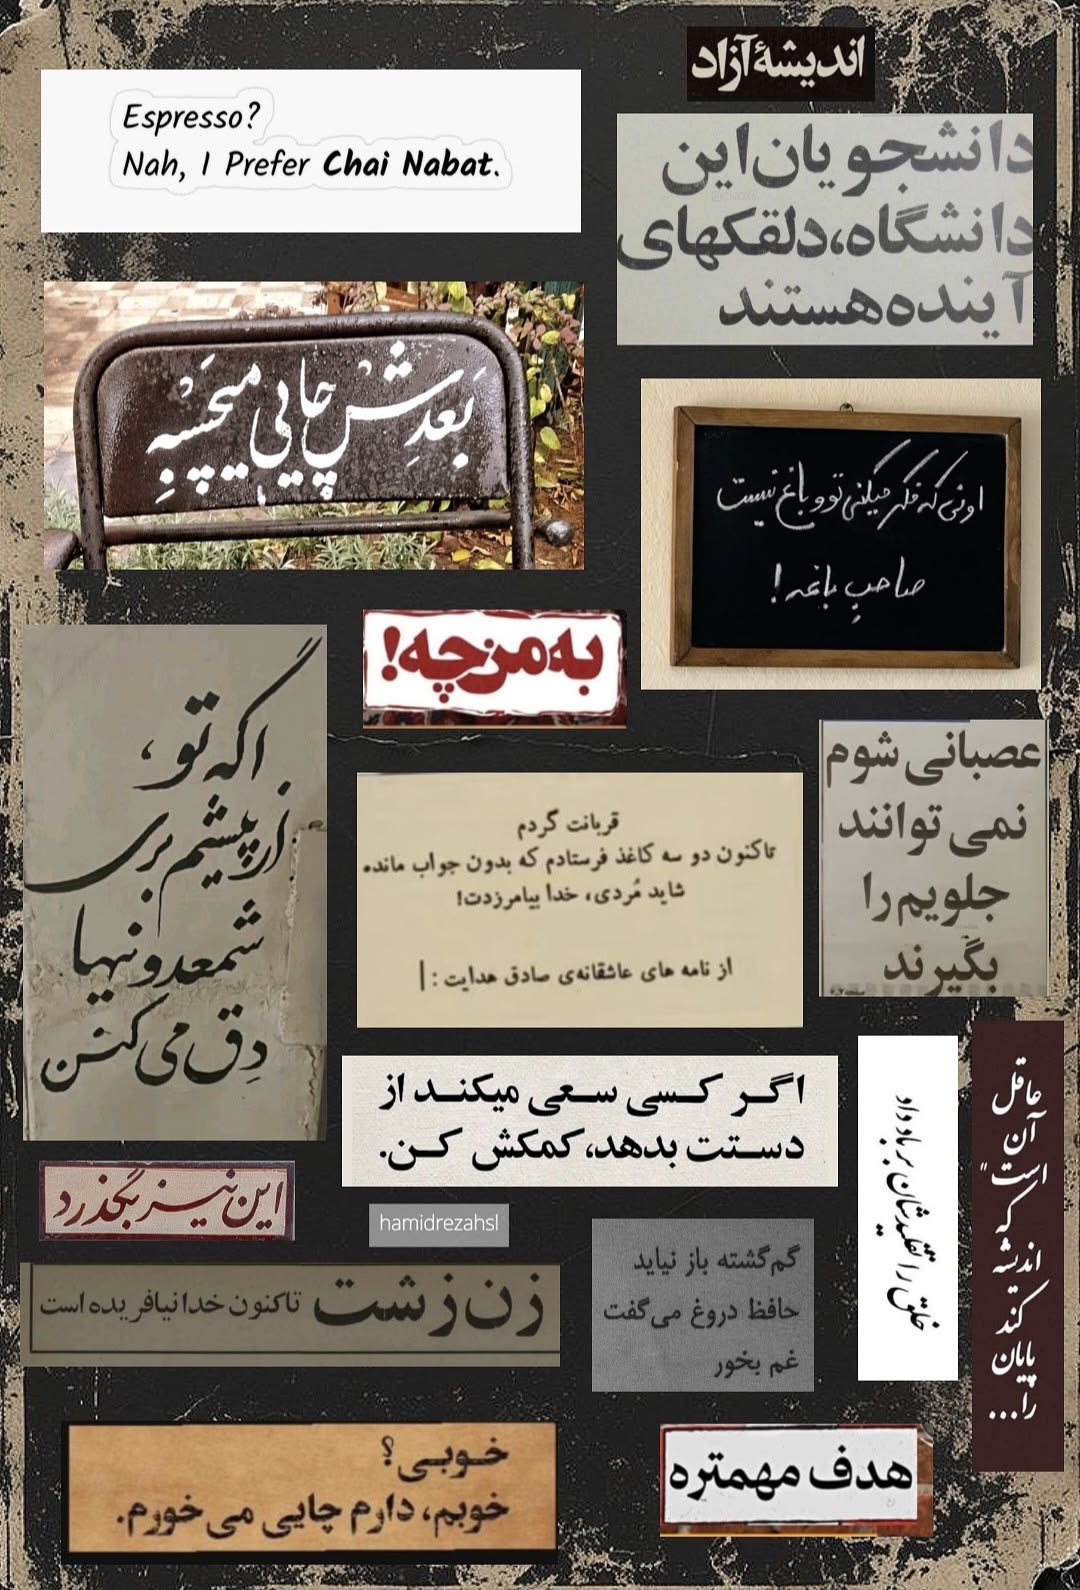 اندیشهٔ آزاد
Espresso?
Nah, I Prefer Chai Nabat.
دانشجویان این
دانشگاه، دلقکهای
آینده هستند
بَعدِش چایی میچَسبِه
اونی که فکر میکنی توو باغ نیست
صاحبِ باغه!
به من چه!
اگه تو،
از پیشم بری
شمعدونیها
دِق می‌کنن
عصبانی شوم
نمی توانند
جلویم را
بگیرند
قربانت گردم
تاکنون دو سه کاغذ فرستادم که بدون جواب مانده
شاید مُردی، خدا بیامرزدت!
از نامه های عاشقانه‌ی صادق هدایت : |
اگر کسی سعی میکند از
دستت بدهد، کمکش کن.
خلق را تقلیدشان بر باد داد
عاقل
آن
است"
که
اندیشه
کند
پایان
را...
این نیز بگذرد
hamidrezahsl
زن زشت تاکنون خدا نیافریده است
گم‌گشته باز نیاید
حافظ دروغ می‌گفت
غم بخور
خوبی؟
خوبم، دارم چایی می خورم.
هدف مهمتره